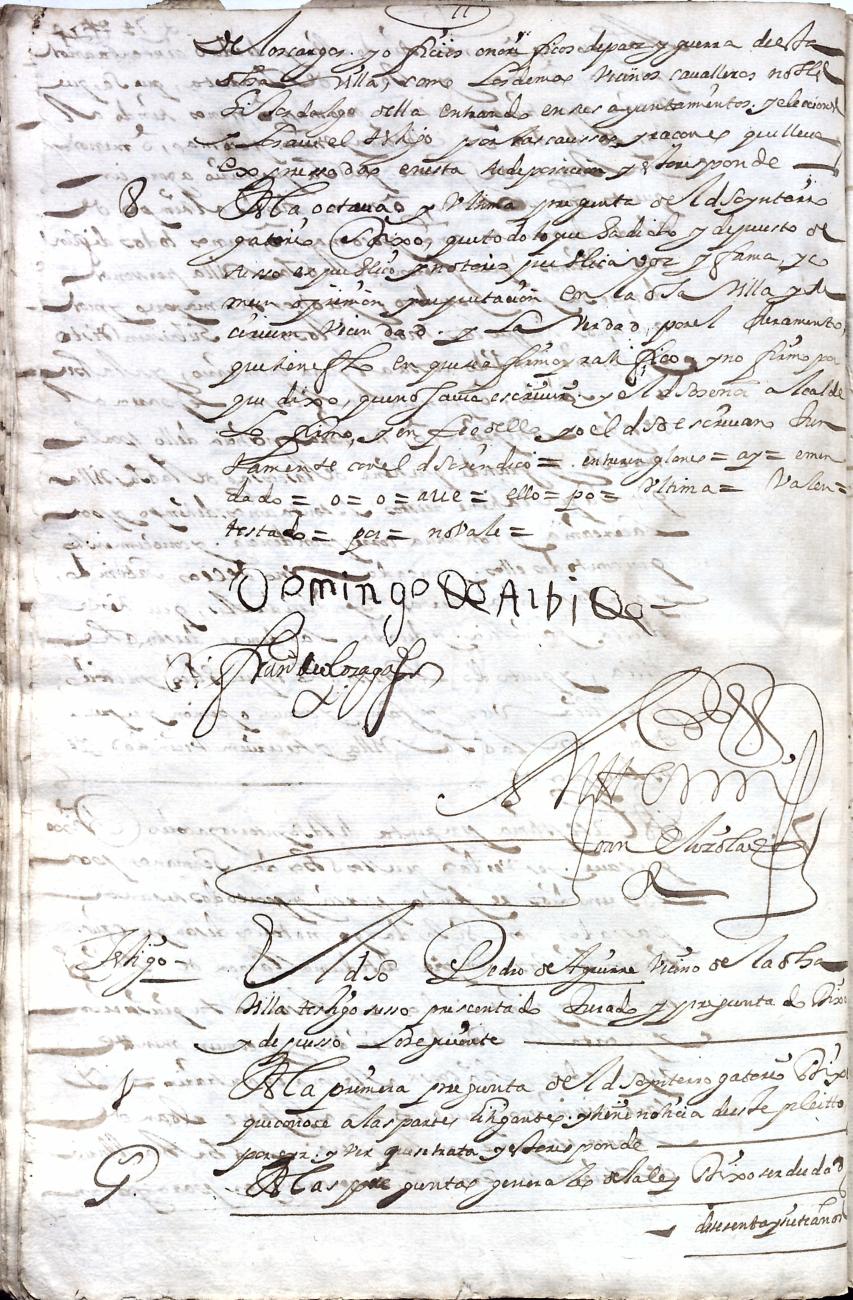 de los cargos y oficios onorificos de paz y guerra de esta
dha Villa, como los demas Vecinos cavalleros nobles
hijosdalgo della entrando en sus ayuntamientos y elecciones
por las caussas y raçones que lleva
expressadas en esta su deposicion y esto responde
8 A la octava y Ultima pregunta del dho ynterro
gatorio Dixo, que todo lo que ha dicho y depuesto de
suso es publico y notorio publica voz y fama, y co
mun opinion y reputacion en la dha Villa y de
circum Vecindad. y La Verdad, por el Juramento,
que tiene fho en que se afirmo y ratifico, y no firmo por
que dixo, que no savia escrivir. y el dho señor Alcalde
Lo firmo, y en fee dello yo el dho escrivano Jun
tamente con el dho sindico = entrerenglones = ay = emen
dado = o = o = ave = ello = po = Ultima = Valen =
testado = por = no Vale =
Domingo De Albi
Testigo El dho Pedro de Aguirre Vecino de la dha
Villa testigo susso pressentado Jurado y preguntado Dixo
y depusso Lo seguiente
1 A la primera pregunta del dho ynterrogatorio Dixo
que conoce a las partes litigantes y tiene noticia de este pleitto
por oyr y ver que se trata y esto responde
G. A las preguntas generales de la ley Dixo ser de edad
de sesenta y siete años